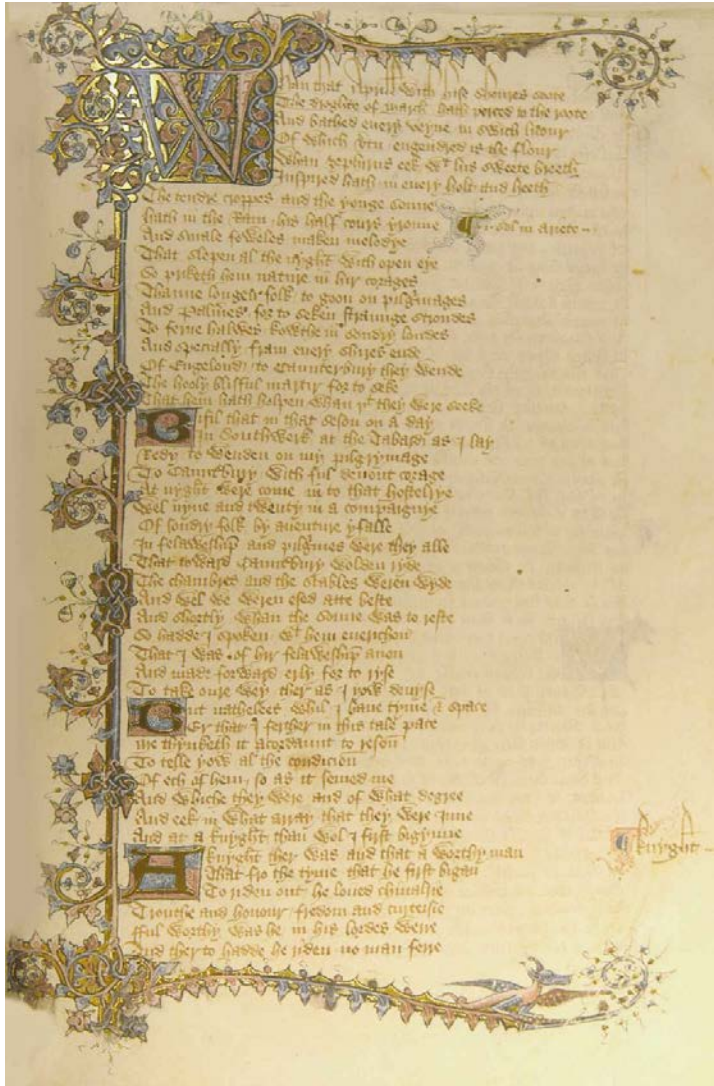 Whan that Aprill with hise shoures soote
The droghte of March hath perced to the roote
And bathed every veyne in swich licour
Of which vertu engendred is the flour
Whan zephirus eek wt his sweete breeth
Inspired hath in every holt and heeth
The tendre croppes and the yonge sonne
Hath in the Ram his half cours yronne
i sol in Ariete
And smale foweles maken melodye
That slepen al the nyght with open eye
So priketh hem nature in hir corages
Thanne longen folk to goon on pilgrimages
And Palmeres for to seken straunge strondes
To ferne halwes kowthe in sondry londes
And specially fram every shires ende
Of Engelond to Caunterbury they wende
The hooly blisful martir for to seke
That hem hath holpen whan þt they were seeke
Bifil that in that seson on a day
In Southwerk at the Tabard as I lay
Redy to wenden on my pilgrymage
To Caunterbury with ful devout corage
At nyght were come in to that hostelrye
Wel nyne and twenty in a compaignye
Of sondry folk by aventure yfalle
In felaweshipe and pilgrimes were they alle
That toward Caunterbury wolden ryde
The chambres and the stables weren wyde
And wel we weren esed atte beste
And shortly whan the sonne was to reste
So hadde I spoken wt hem everichon
That I was of hir felaweshipe anon
And made forward erly for to ryse
To take oure wey ther as I yow devyse
But nathelees whil I have tyme & space
Er that I ferther in this tale pace
Me thynketh it acordaunt to reson
To telle yow al the condicion
Of ech of hem so as it semed me
And whiche they were and of what degree
And eek in what array that they were inne
And at a knyght than wol I first bigynne
Knyght
A knyght ther was and that a worthy man
That fro the tyme that he first bigan
To riden out he loved chivalrie
Trouthe and honour fredom and curteisie
fful worthy was he in his lordes werre
And ther to hadde he riden no man ferre